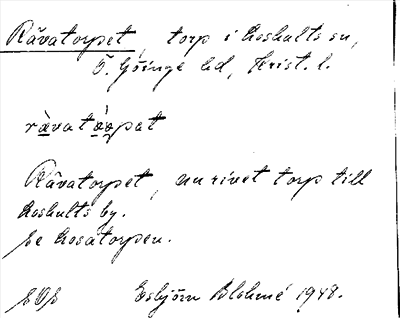 Rävatorpet, torp i Loshults sn,
Ö. Göinge hd, Krist. l.
rävatåɔ̀rpet
Rävatorpet, nu rivet torp till
Loshults by.
Se Rosatorpen.
SOS Esbjörn Blohmé 1948.